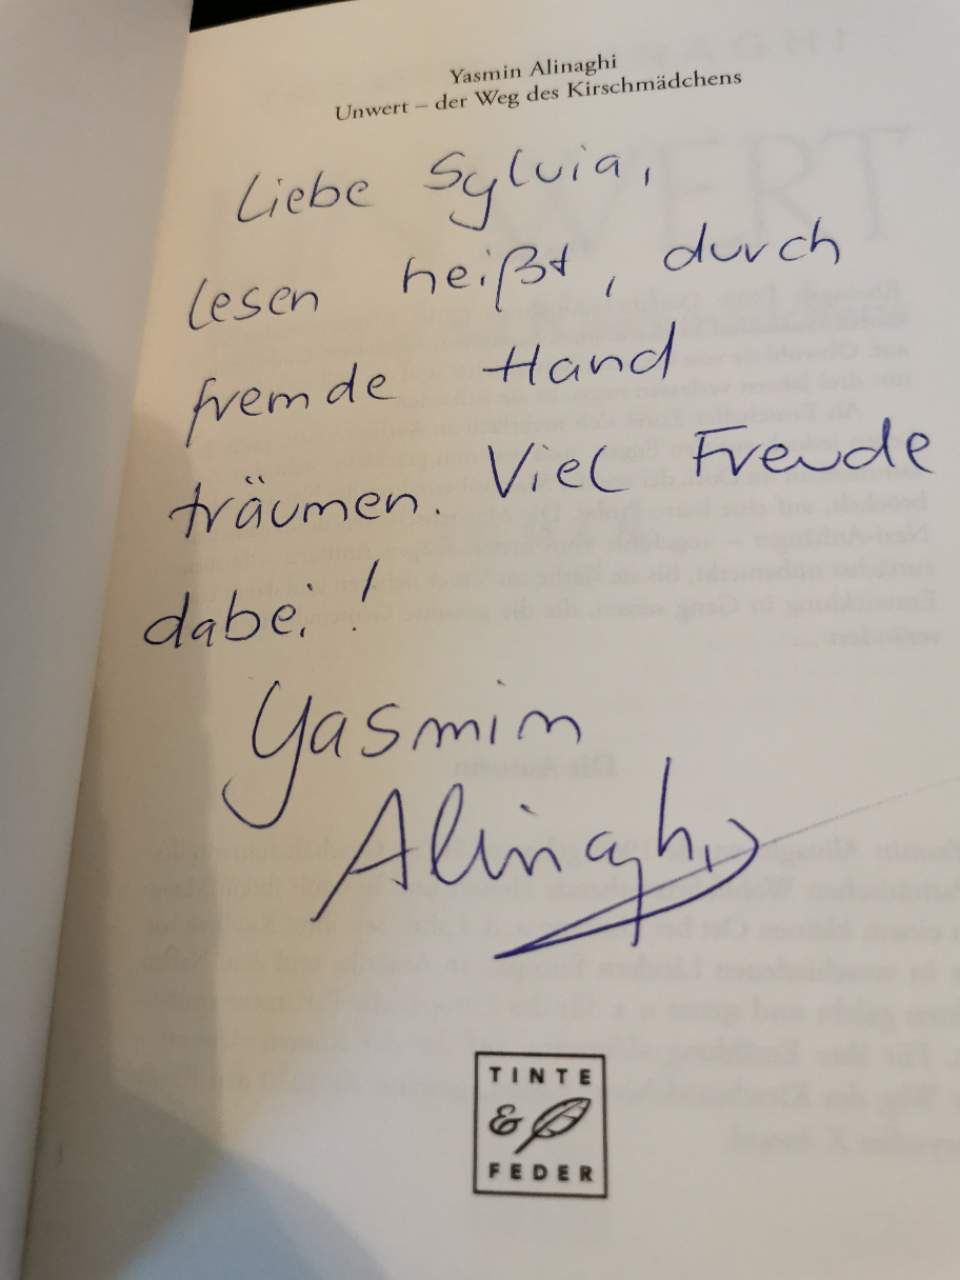 Yasmin Alinaghi
Unwert – der Weg des Kirschmädchens
Liebe Sylvia,
lesen heißt, durch
fremde Hand
träumen. Viel Freude
dabei!
Yasmin
Alinaghi
TINTE
&
FEDER